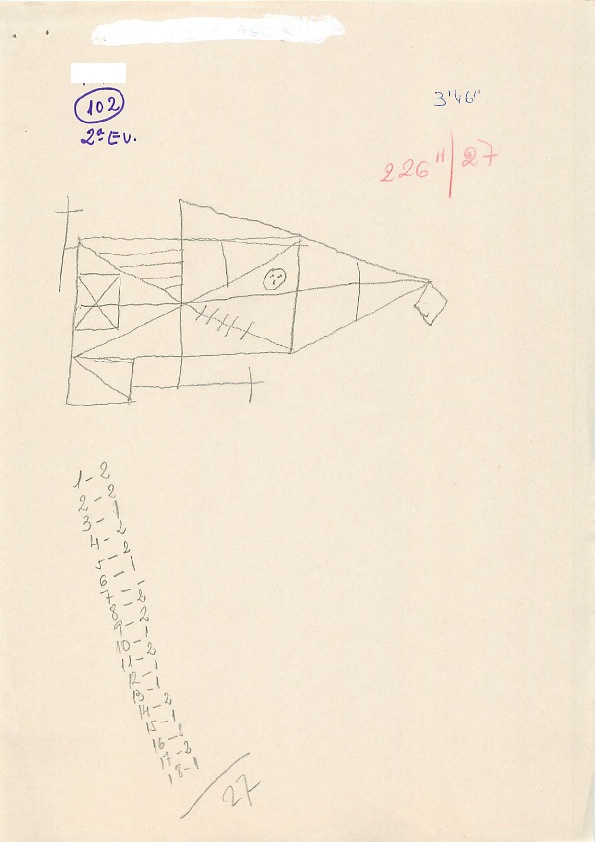 102
2ª EV.
3'46"
226" | 27
1 - 2
2 - 2
3 - 1
4 - 2
5 - 2
6 - 1
7 - 1
8 - 2
9 - 2
10 - 1
11 - 2
12 - 1
13 - 1
14 - 2
15 - 1
16 - 1
17 - 2
18 - 1
27